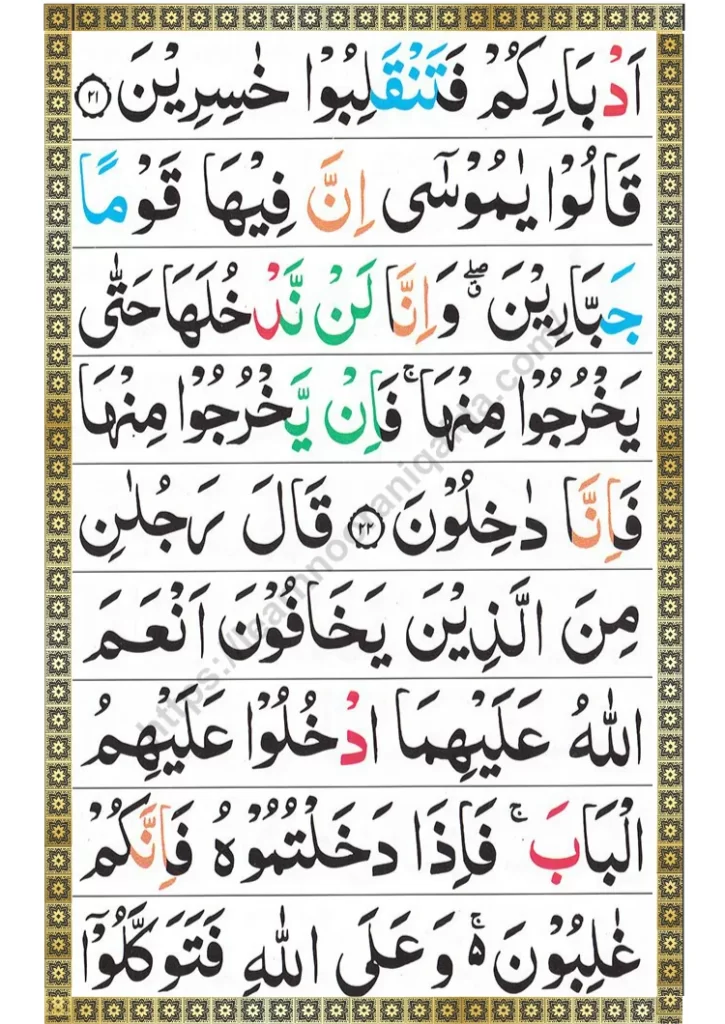 اَدْبَارِكُمْ فَتَنْقَلِبُوْا خٰسِرِيْنَ ۝۲۱
قَالُوْا يٰمُوْسٰٓى اِنَّ فِيْهَا قَوْمًا
جَبَّارِيْنَ ۖۗ وَاِنَّا لَنْ نَّدْخُلَهَا حَتّٰى
يَخْرُجُوْا مِنْهَا ۚ فَاِنْ يَّخْرُجُوْا مِنْهَا
فَاِنَّا دٰخِلُوْنَ ۝۲۲ قَالَ رَجُلٰنِ
مِنَ الَّذِيْنَ يَخَافُوْنَ اَنْعَمَ
اللّٰهُ عَلَيْهِمَا ادْخُلُوْا عَلَيْهِمُ
الْبَابَ ۚ فَاِذَا دَخَلْتُمُوْهُ فَاِنَّكُمْ
غٰلِبُوْنَ ۚ۬ وَعَلَى اللّٰهِ فَتَوَكَّلُوْٓا